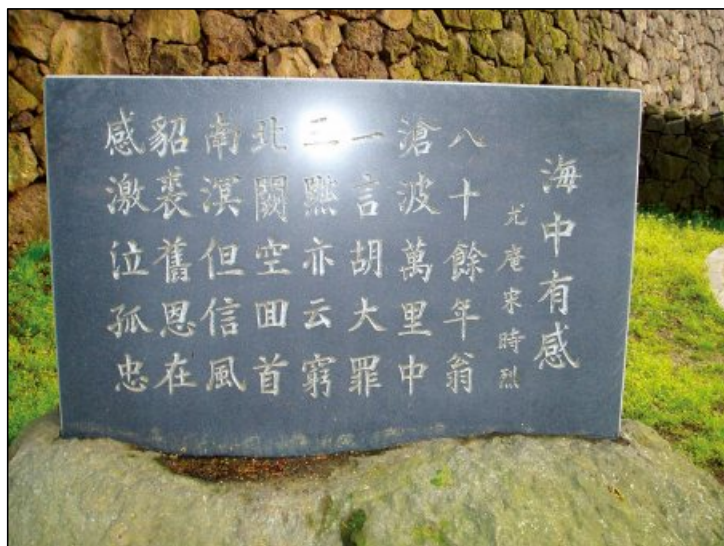 海中有感
尤庵宋時烈
八十餘年翁
滄波萬里中
一言胡大罪
三黜亦云窮
北闕空回首
南溟但信風
貂裘舊恩在
感激泣孤忠